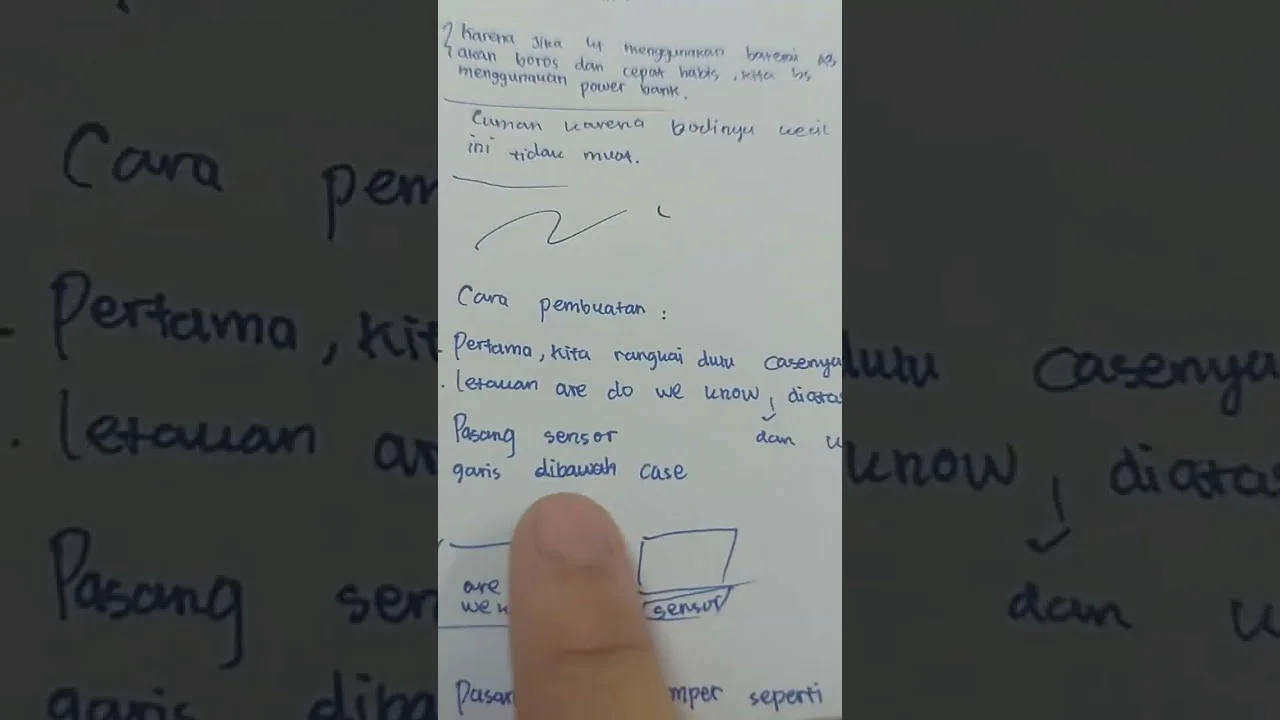 Karena jika menggunakan baterai
akan boros dan cepat habis, kita bs
menggunakan power bank.
Cuman karena bodinya kecil
ini tidak muat.
Cara pembuatan :
Pertama, kita rangkai dulu casenya
letakan are do we know, diatas
Pasang sensor dan
garis dibawah case
are
we
sensor
Pasan mper seperti